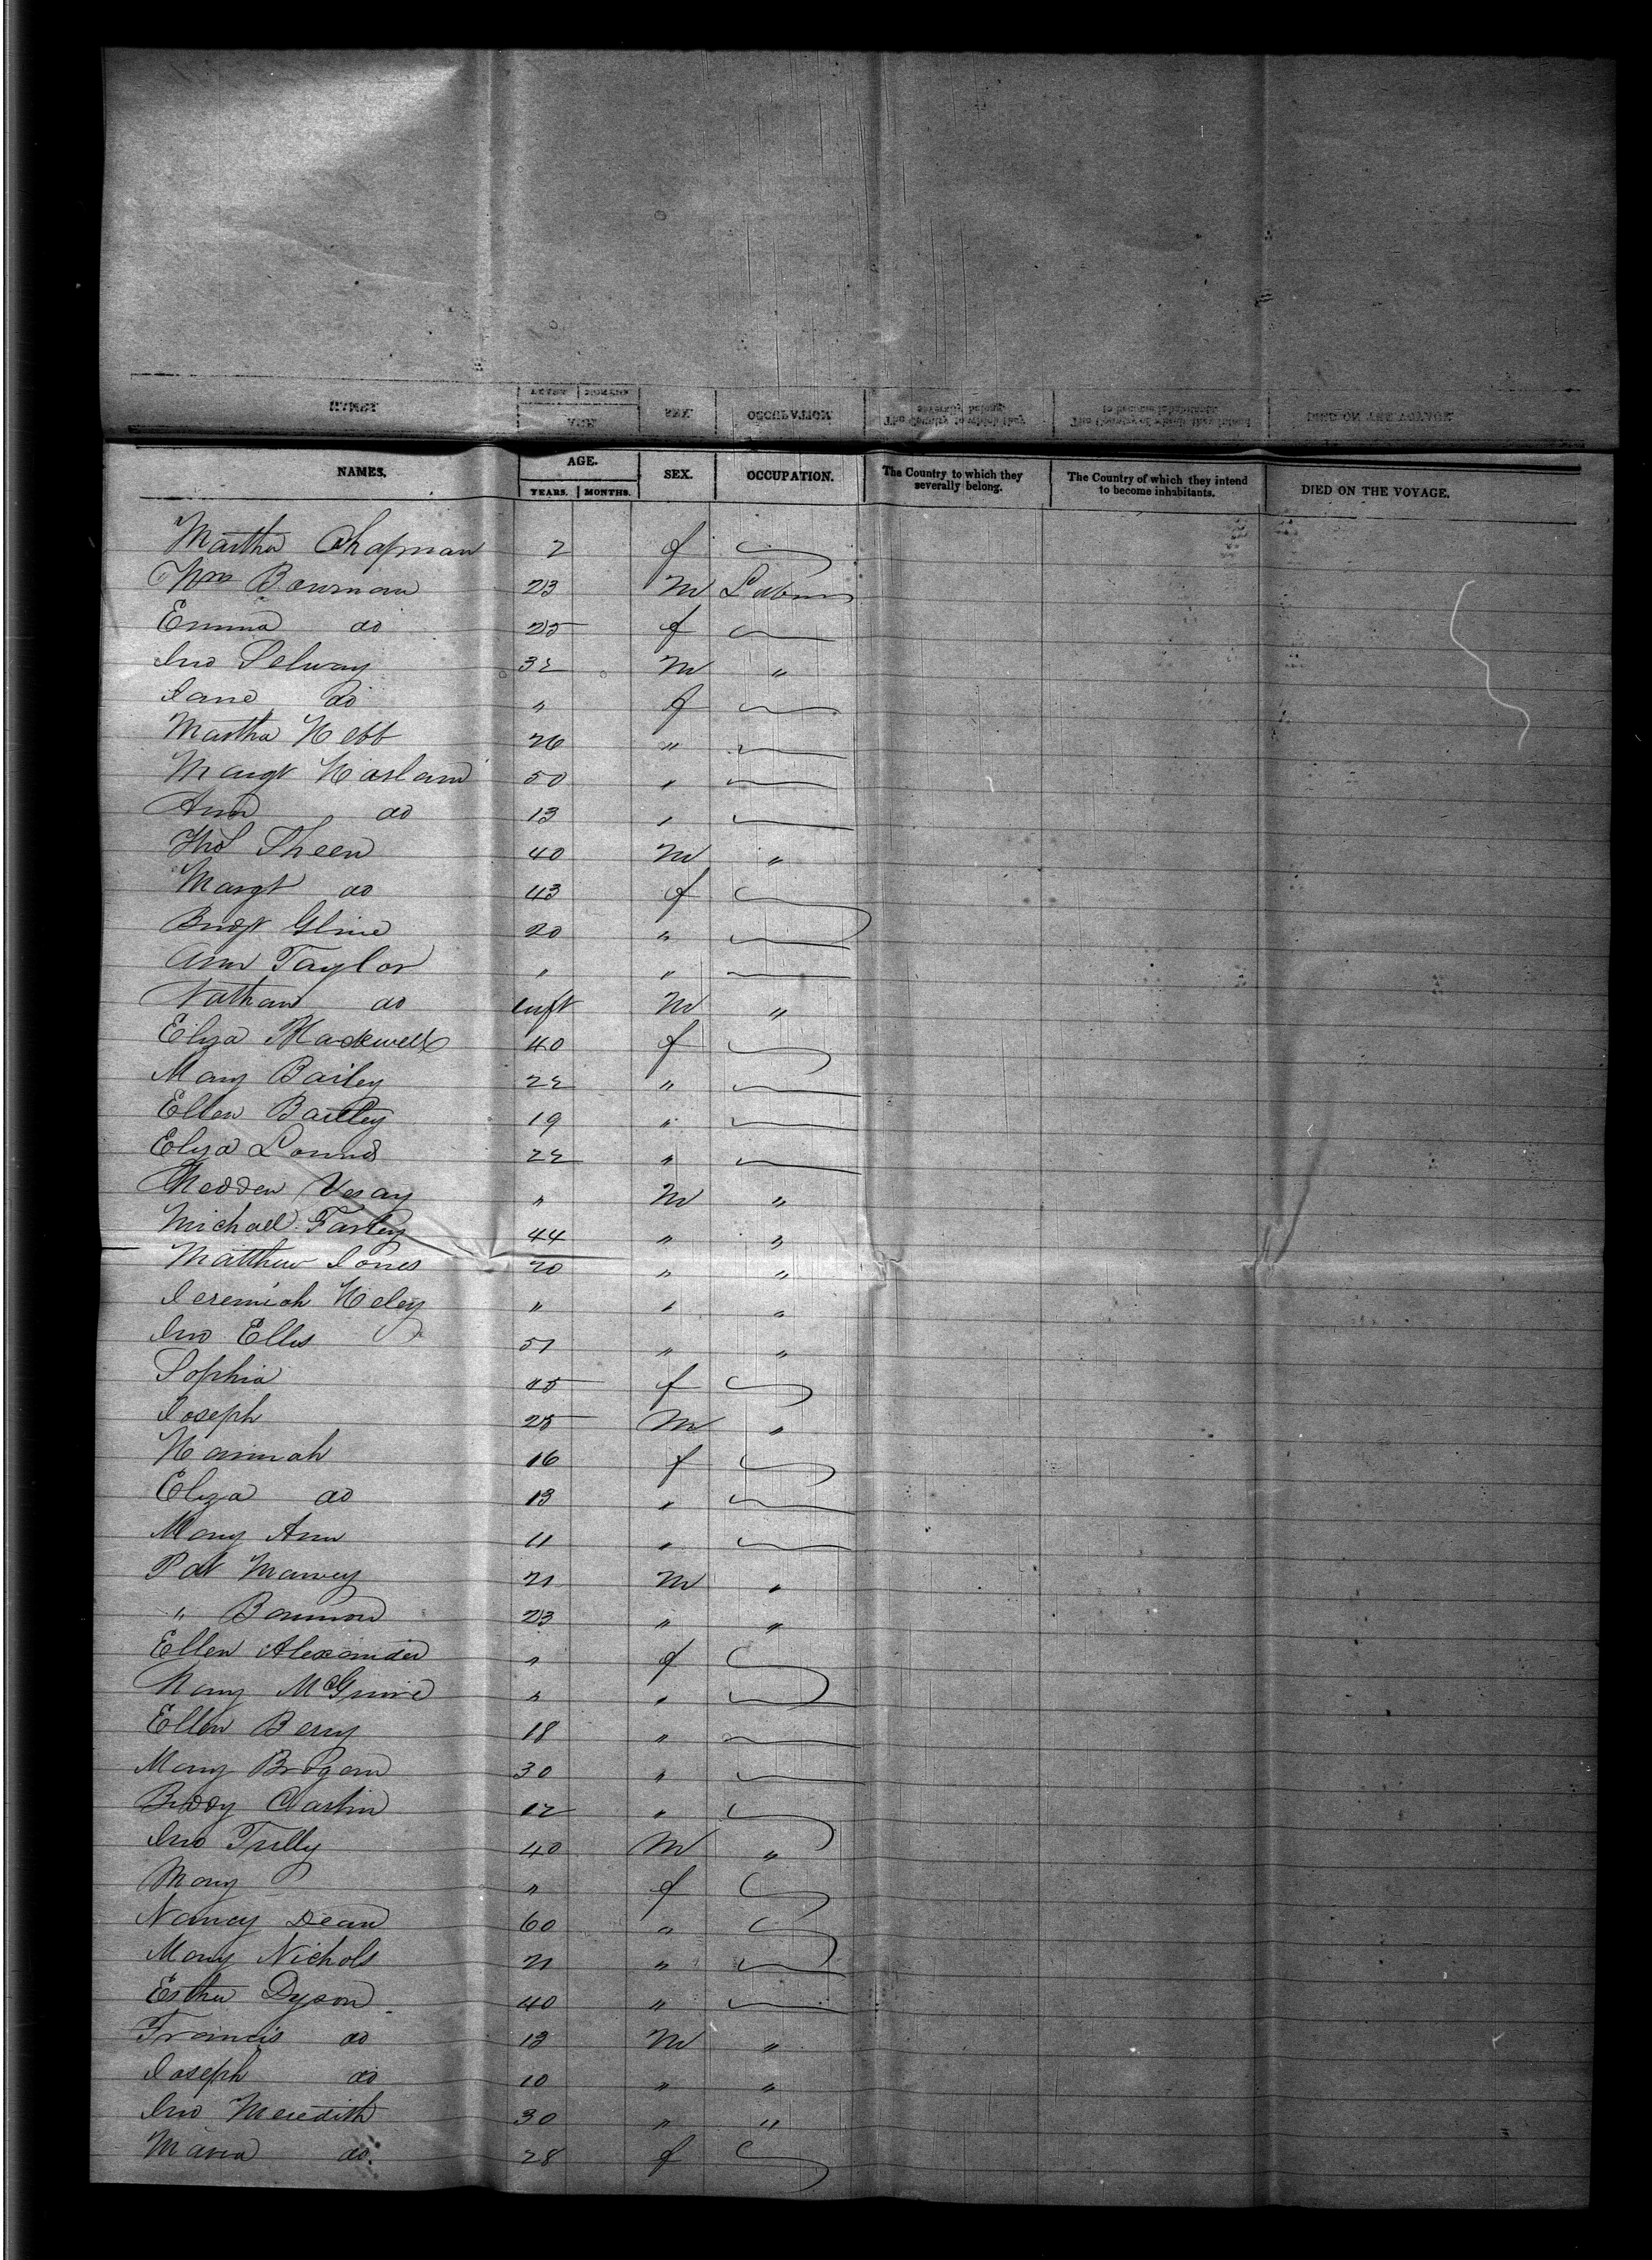 NAMES. AGE. YEARS. MONTHS. SEX. OCCUPATION. The Country to which they severally belong. The Country of which they intend to become inhabitants. DIED ON THE VOYAGE.
Martha Chapman 2 f
Wm Bowman 23 M Labor
Emma do 25 f
Jno Selway 32 M "
Jane do " f
Martha Webb 26 "
Margt Harland 50 "
Ann do 13 "
Thos Sheen 40 M "
Margt do 43 f
Bridgt Gline 20 "
Ann Taylor " "
Nathan do Inft M "
Eliza Mackwell 40 f
Mary Bailey 22 "
Ellen Bailey 19 "
Eliza Lound 22 "
Hedden Vesay " M "
Michael Farley 44 " "
Matthew Jones 20 " "
Jeremiah Heley " " "
Jno Ellis 57 " "
Sophia 45 f
Joseph 25 M "
Hannah 16 f
Eliza do 13 "
Mary Ann 11 "
Pat Marvey 21 M "
" Bannion 23 " "
Ellen Alexander " f
Mary McGuire " "
Ellen Berry 18 "
Mary Brogan 30 "
Biddy Carlin 12 "
Jno Tully 40 M "
Mary " f
Nancy Dean 60 "
Mary Nichols 21 "
Esther Dyson 40 "
Francis do 13 M "
Joseph do 10 " "
Jno Meredith 30 " "
Maria do 28 f